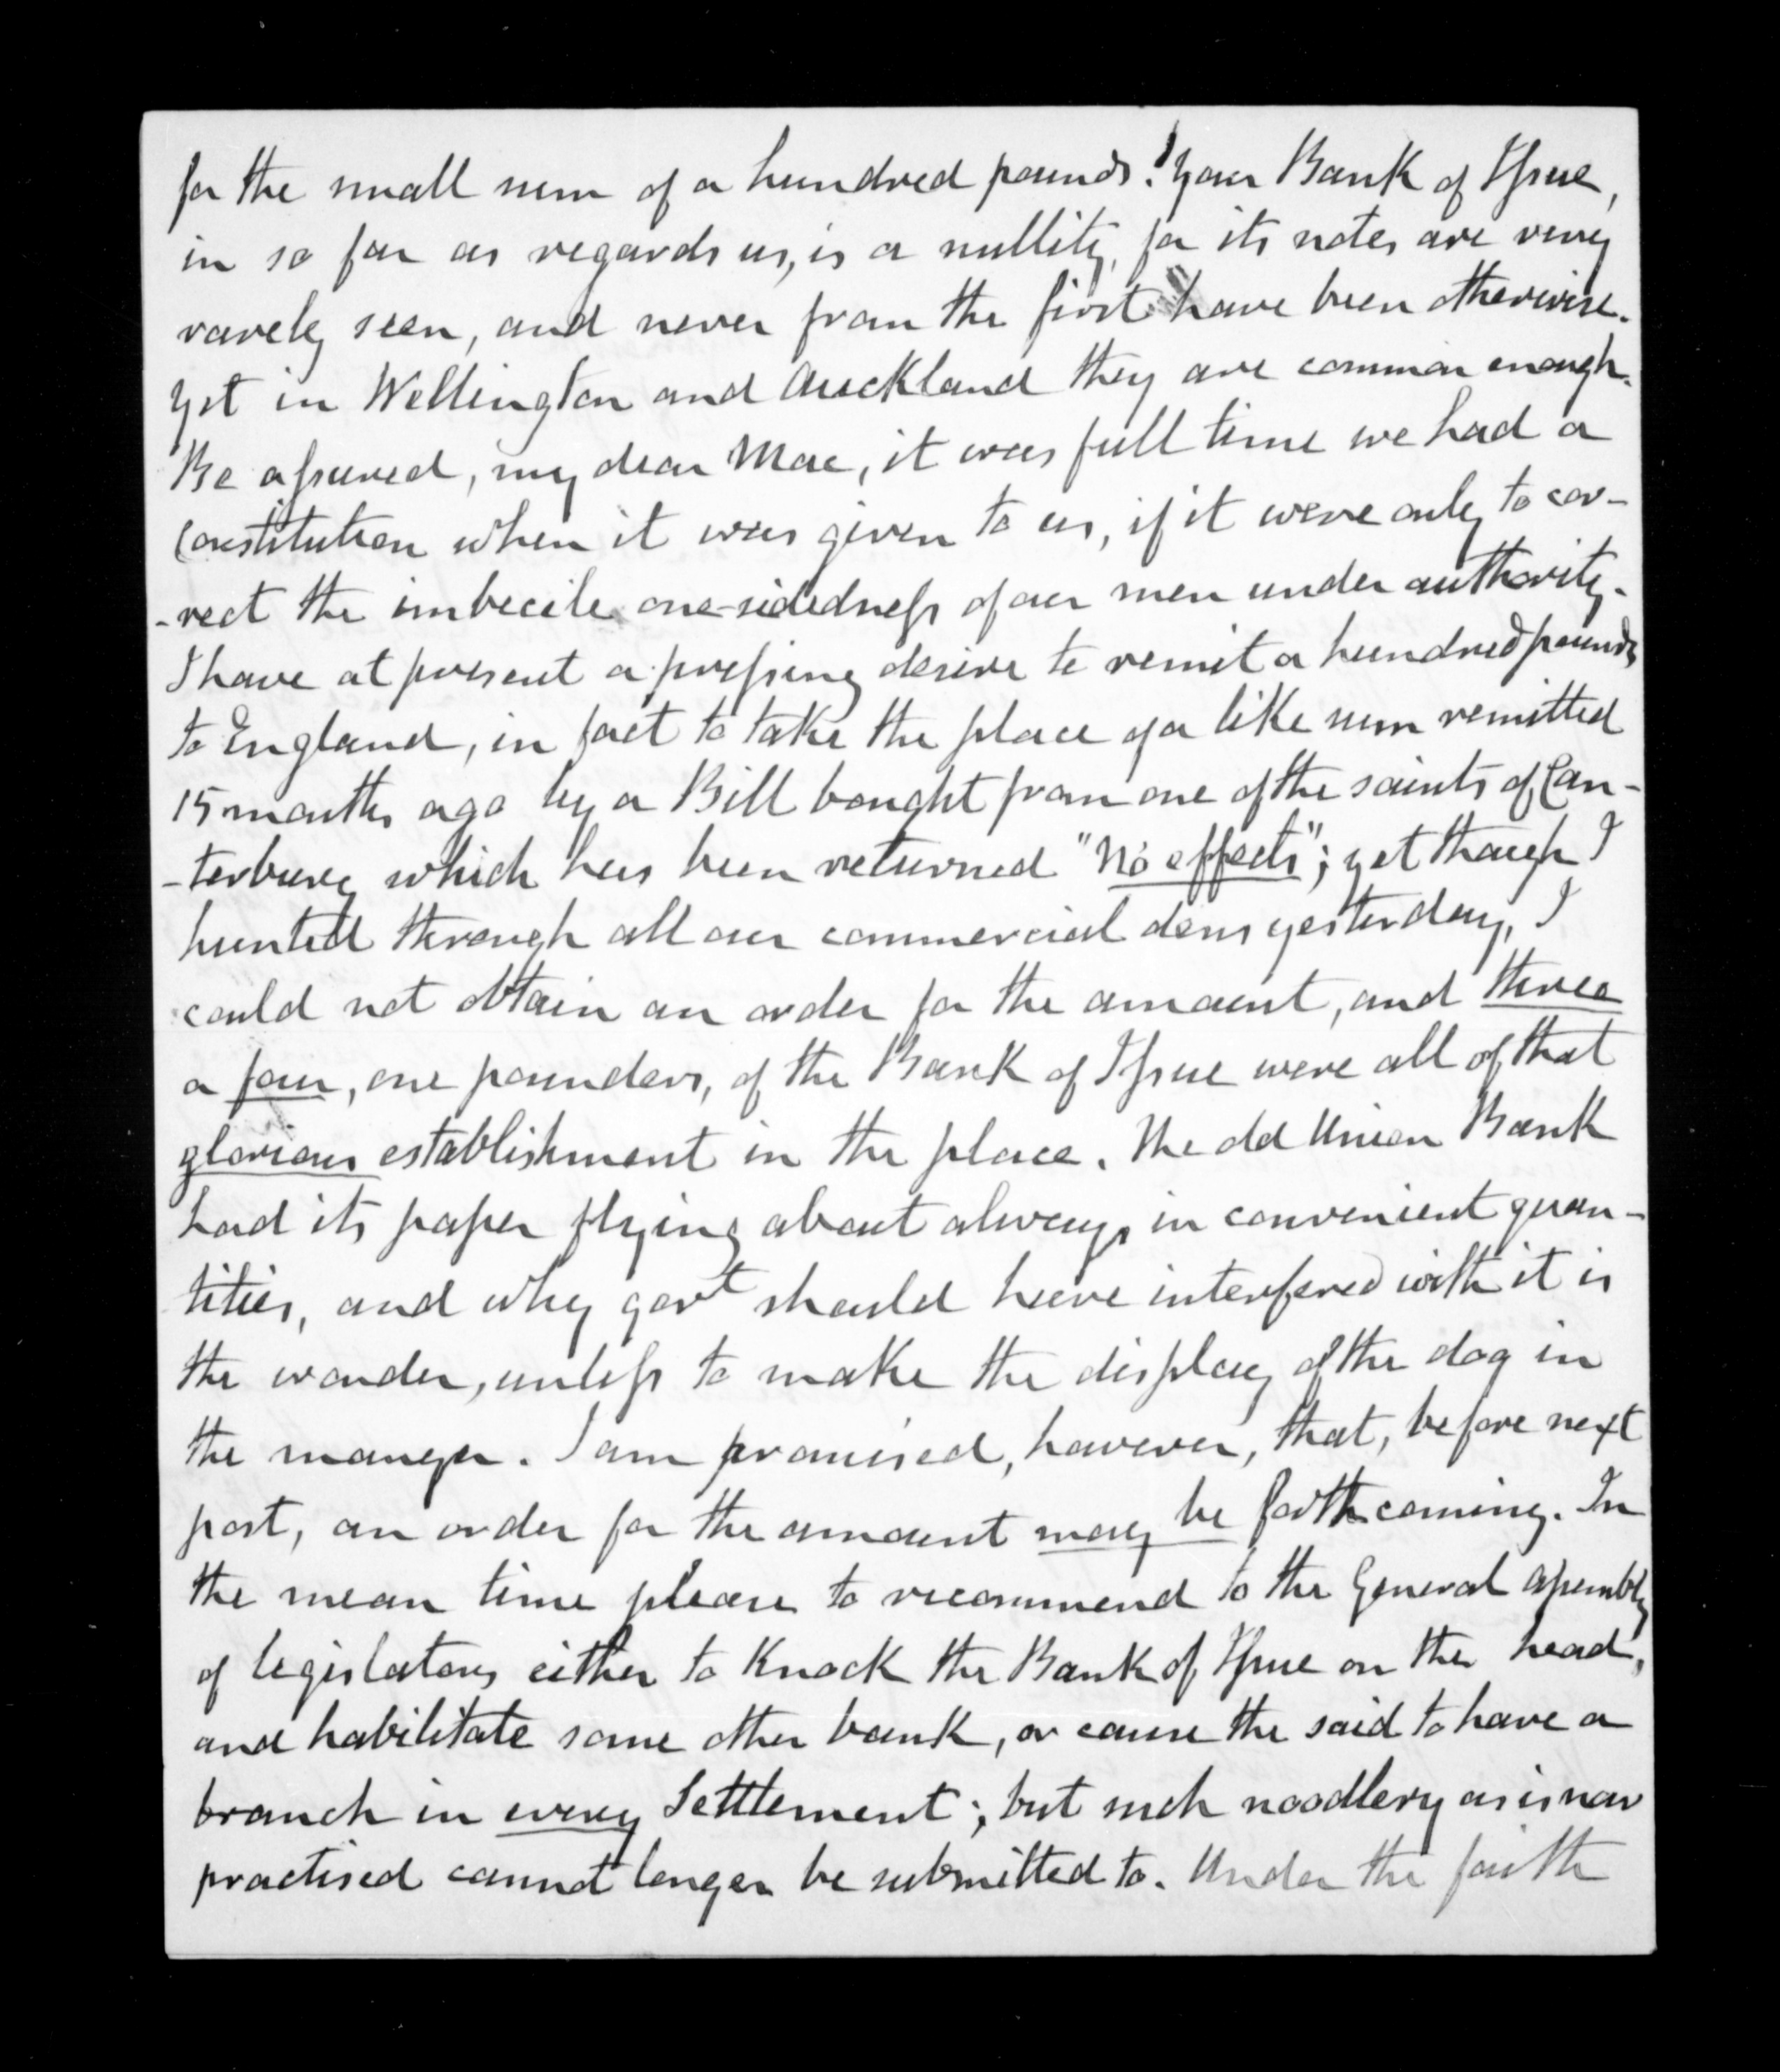 for the small sum of a hundred pounds! Your Bank of Issue,
in so far as regards us, is a nullity, for its notes are very
rarely seen, and never from the first have been otherwise.
Yet in Wellington and Auckland they are common enough.
Be assured, my dear Mac, it was full time we had a
Constitution when it was given to us, if it were only to cor-
-rect the imbecile one-sidedness of our men under authority.
I have at present a pressing desire to remit a hundred pounds
to England, in fact to take the place of a like sum remitted
15 months ago by a Bill bought from one of the saints of Can-
-terbury which has been returned "No effects"; yet though I
hunted through all our commercial dens yesterday, I
could not obtain an order for the amount, and three
or four, one pounders, of the Bank of Issue were all of that
glorious establishment in the place. The old Union Bank
had its paper flying about always in convenient quan-
tities, and why govt should have interfered with it is
the wonder, unless to make the display of the dog in
the manger. I am promised, however, that, before next
post, an order for the amount may be forthcoming. In
the mean time please to recommend to the General Assembly
of legislators either to knock the Bank of Issue on the head,
and habilitate some other bank, or cause the said to have a
branch in every Settlement; but such noodlery as is now
practised cannot longer be submitted to. Under the faith